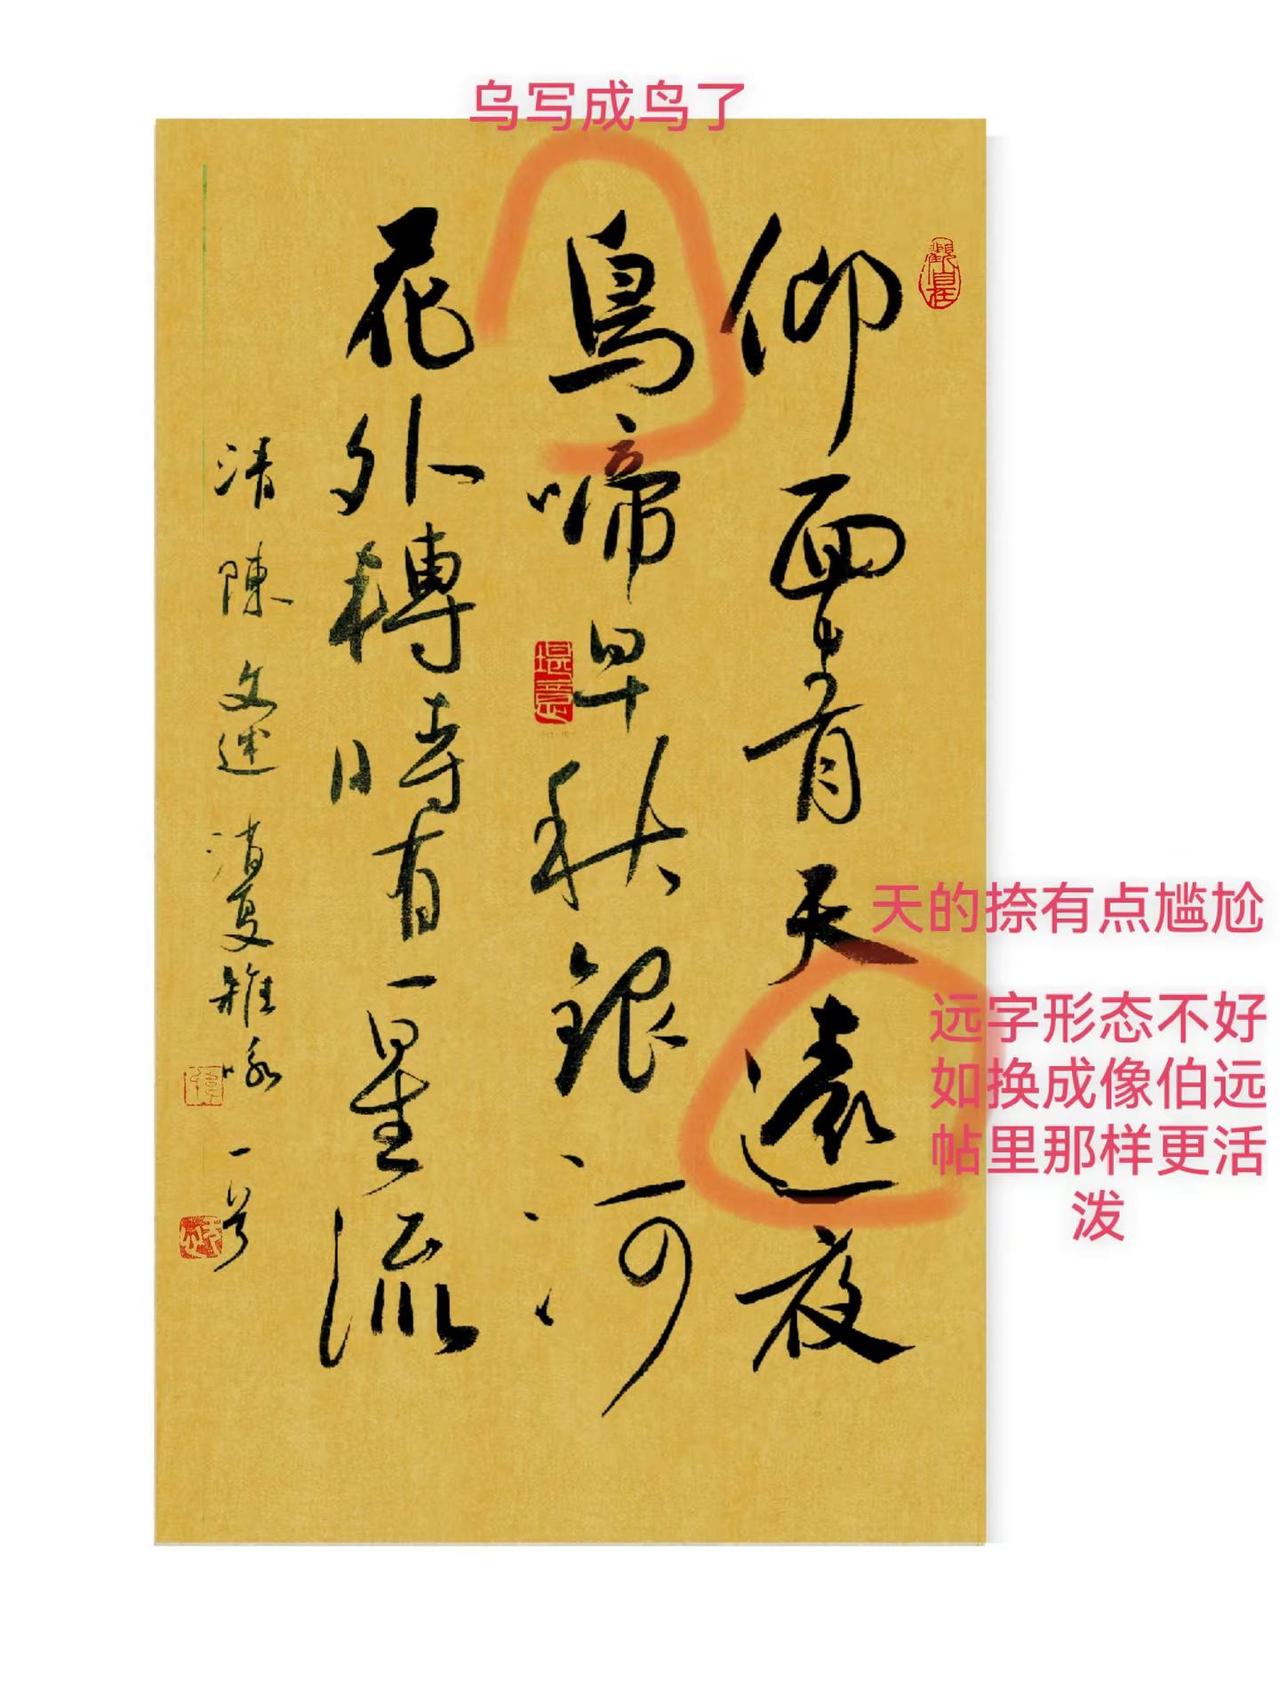 乌写成鸟了
仰面看天遠夜
鳥啼早秋銀河
花外轉時有一星流
清陳文述消夏雜咏
觀自在
天的捺有点尴尬
远字形态不好
如换成像伯远
帖里那样更活
泼